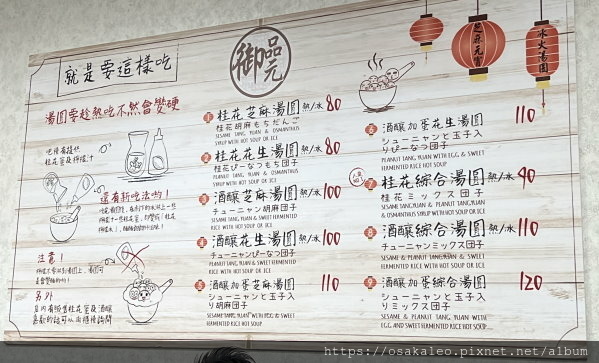 就是要這樣吃
湯圓要趁熱吃不然會變硬
還有新吃法喲!
注意!
另外
御品元
芝麻元宵
冰火湯圓
1 桂花芝麻湯圓 熱/冰 80
桂花胡麻もちだんご
SESAME TANG YUAN & OSMANTHUS
SYRUP WITH HOT SOUP OR ICE
2 桂花花生湯圓 熱/冰 80
桂花ぴーなつもち団子
PEANUT TANG YUAN & OSMANTHUS
SYRUP WITH HOT SOUP OR ICE
3 酒釀芝麻湯圓 熱/冰 100
チューニャン胡麻団子
SESAME TANG YUAN & SWEET FERMENTED
RICE WITH HOT SOUP OR ICE
4 酒釀花生湯圓 熱/冰 100
チューニャンぴーなつ団子
PEANUT TANG YUAN & SWEET FERMENTED
RICE WITH HOT SOUP OR ICE
5 酒釀加蛋芝麻湯圓 110
シューニャンと玉子入
り胡麻団子
SESAME TANG YUAN WITH EGG & SWEET
FERMENTED RICE HOT SOUP
6 酒釀加蛋花生湯圓 110
シューニャンと玉子入
りぴーなつ団子
PEANUT TANG YUAN WITH EGG & SWEET
FERMENTED RICE HOT SOUP
7 桂花綜合湯圓 熱/冰 90
桂花ミックス団子
SESAME TANG YUAN & PEANUT TANG YUAN
& OSMANTHUS SYRUP WITH HOT SOUP OR ICE
8 酒釀綜合湯圓 熱/冰 110
チューニャンミックス団子
SESAME TANG YUAN & SWEET FERMENTED
RICE WITH HOT SOUP OR ICE
9 酒釀加蛋綜合湯圓 120
シューニャンと玉子入
りミックス団子
SESAME & PEANUT TANG YUAN WITH
EGG AND SWEET FERMENTED RICE HOT SOUP
https://osakaleo.pixnet.net/album